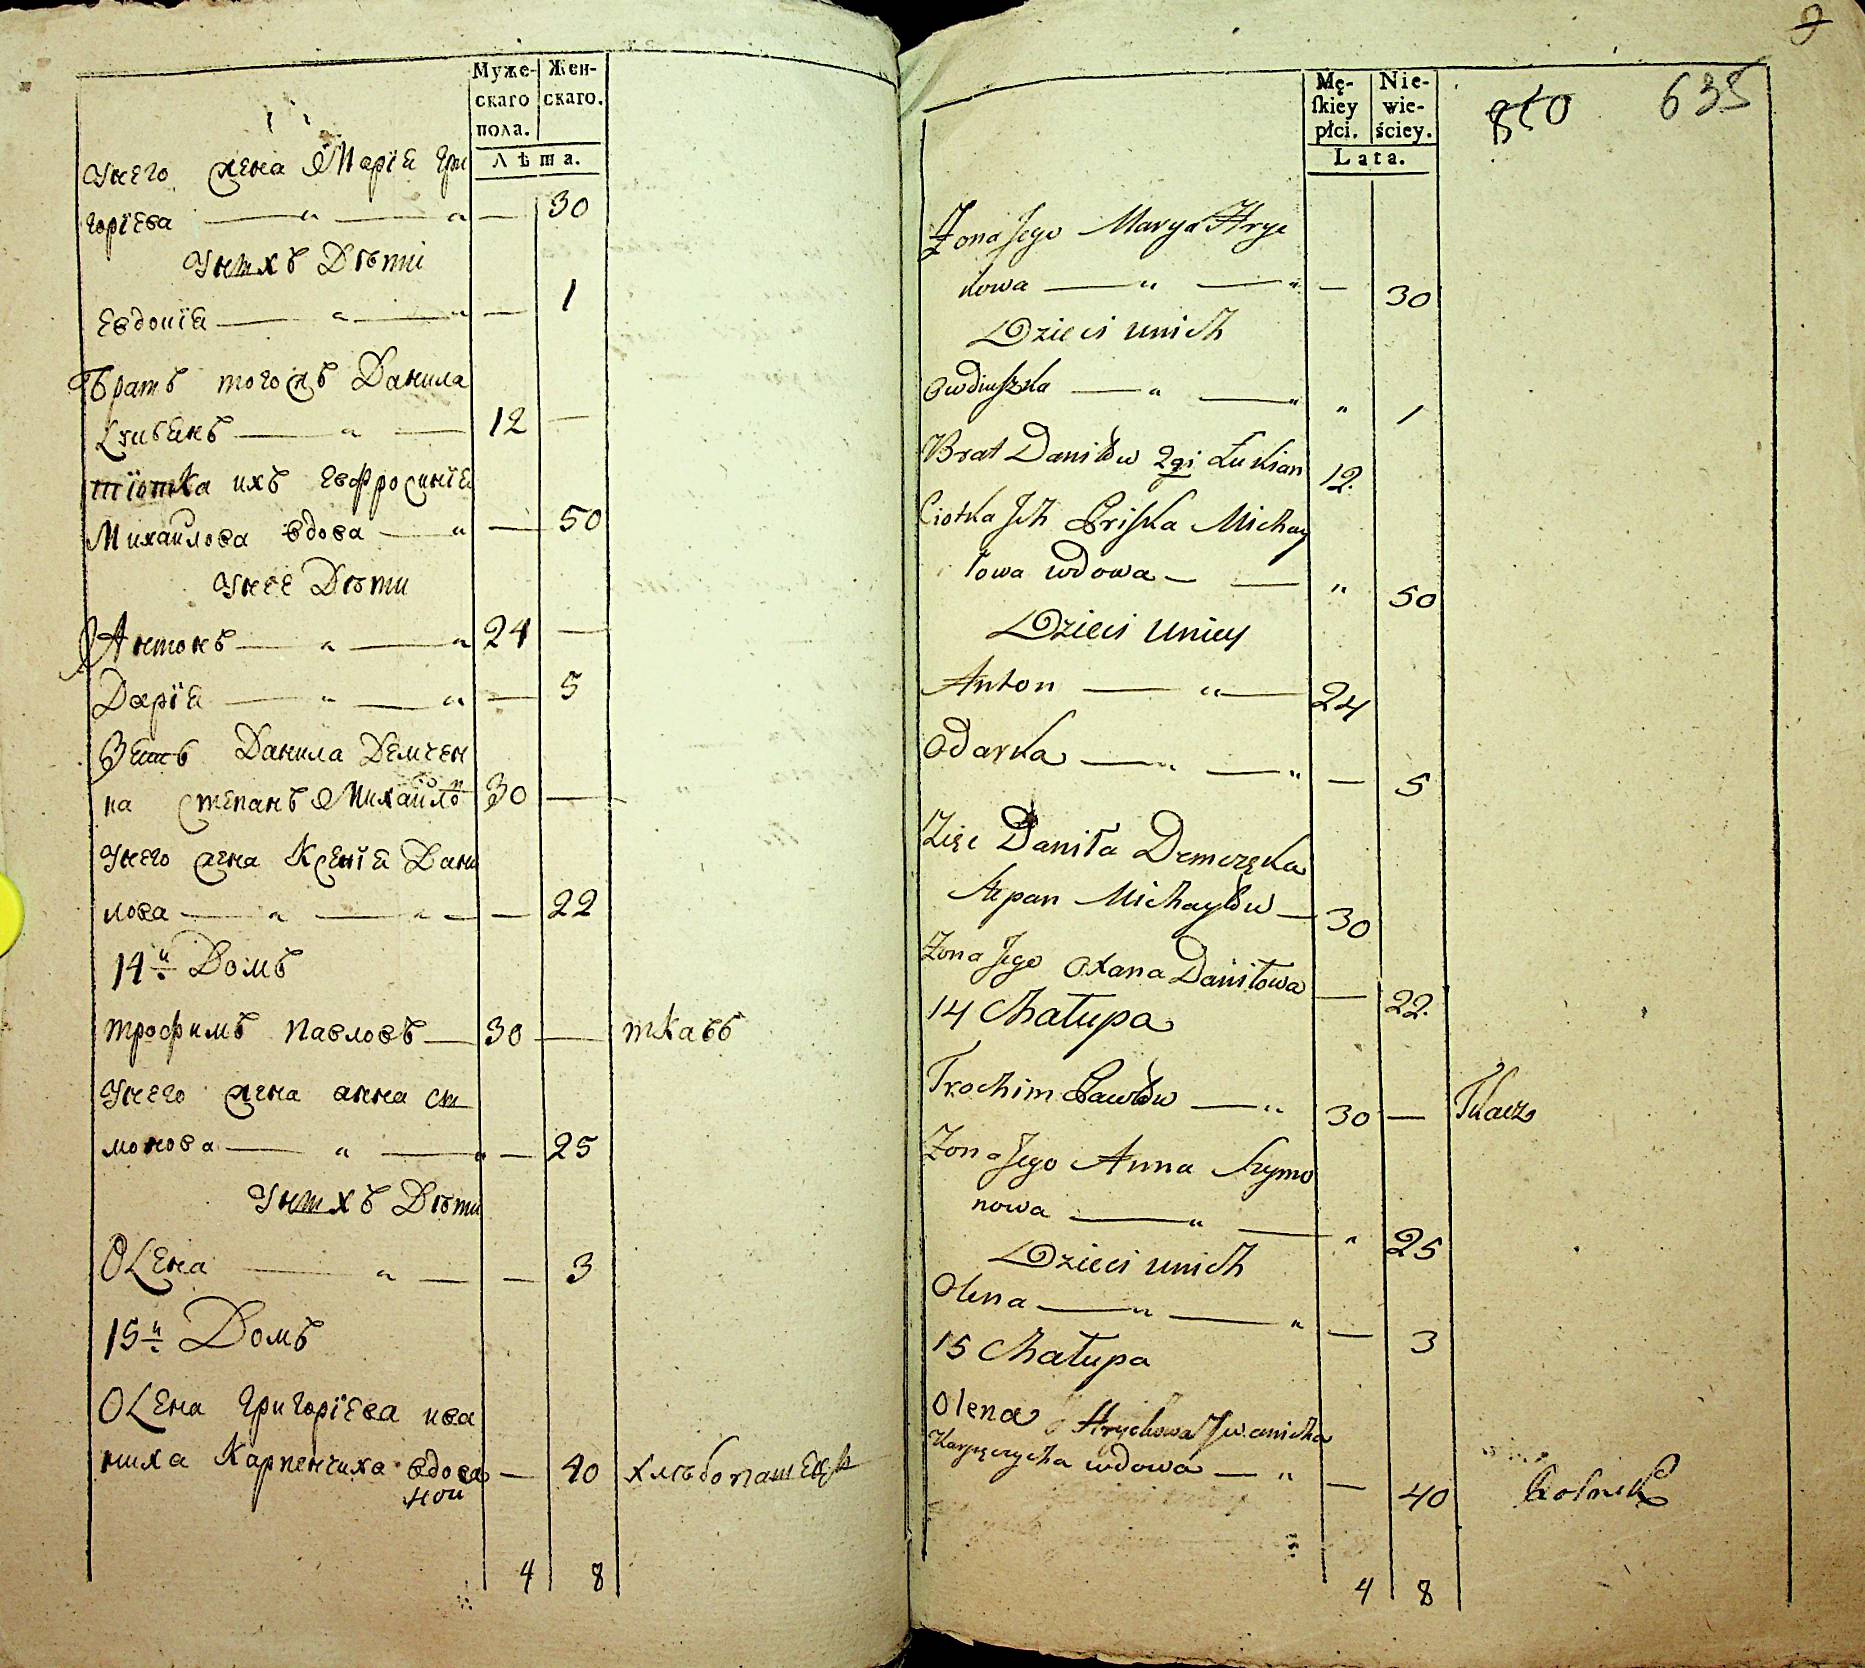 Муже- Жен-
скаго скаго.
пола.
Лѣта.
Унего жена Марїя Гри
горїева — „ — „ — 30
Унихъ Дѣти
Евдокїя — „ — „ — 1
Братъ тогожъ Данила
Лукянъ — „ — 12 —
тїотка ихъ Евфросинїя
Михайлова вдова — „ — 50
Унее Дѣти
Антонъ — „ — „ 24 —
Дарїя — „ — „ — 5
Зять Данила Демчен
ка Степанъ Михайловъ 30 —
Унего жена Ксенїя Дани
лова — „ — „ — — 22
14й Домъ
трофимъ Павловъ — 30 — ткачъ
Унего жена анна си
монова — „ — „ — 25
Унихъ Дѣти
Олена — „ — — 3
15й Домъ
Олена Григорїева ива
ниха Карпенчиха вдова — 40 хлѣбопашецъ
4 8
9
Mę- Nie-
ſkiey wie-
płci. ściey.
Lata.
810 635
Żona Jego Marya Hryc
kowa — „ — „ — 30
Dzieci unich
Owdiuszka — „ — „ „ 1
Brat Daniłow 2gi Łukian 12.
Ciotka Jch Priska Michay
łowa wdowa — — „ 50
Dzieci uniey
Anton — „ — 24
Odarka — „ — „ — 5
Zięc Daniła Demczęka
Stepan Michayłow — 30
Żona Jego Oxana Daniłowa — 22.
14 Chałupa
Trochim Pawłow — „ 30 — Tkacz
Żona Jego Anna Szymo
nowa — „ — „ 25
Dzieci unich
Olena — „ — „ — 3
15 Chałupa
Olena Hryckowa Jwanicha
Karpęczycha wdowa — „ — 40 Rolnik
4 8